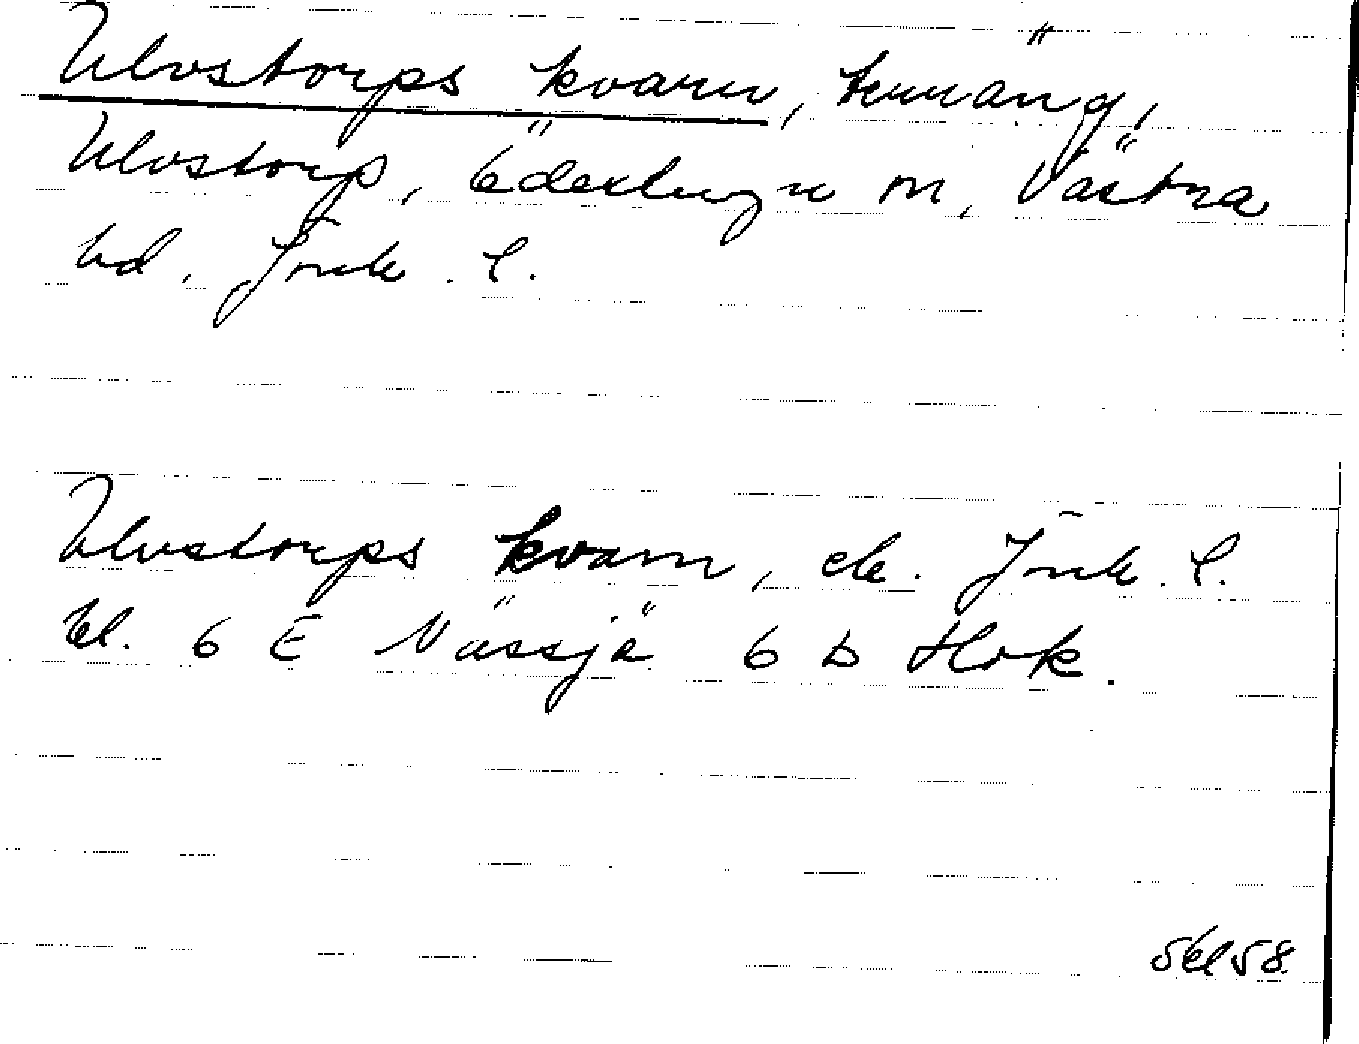 Ulvstorps kvarn, terräng,
Ulvstorp, Ödestugu sn, Västra
hd. Jönk. l.
Ulvstorps kvarn, ek. Jönk. l.
bl. 6 E Nässjö 6 D Hok.
58